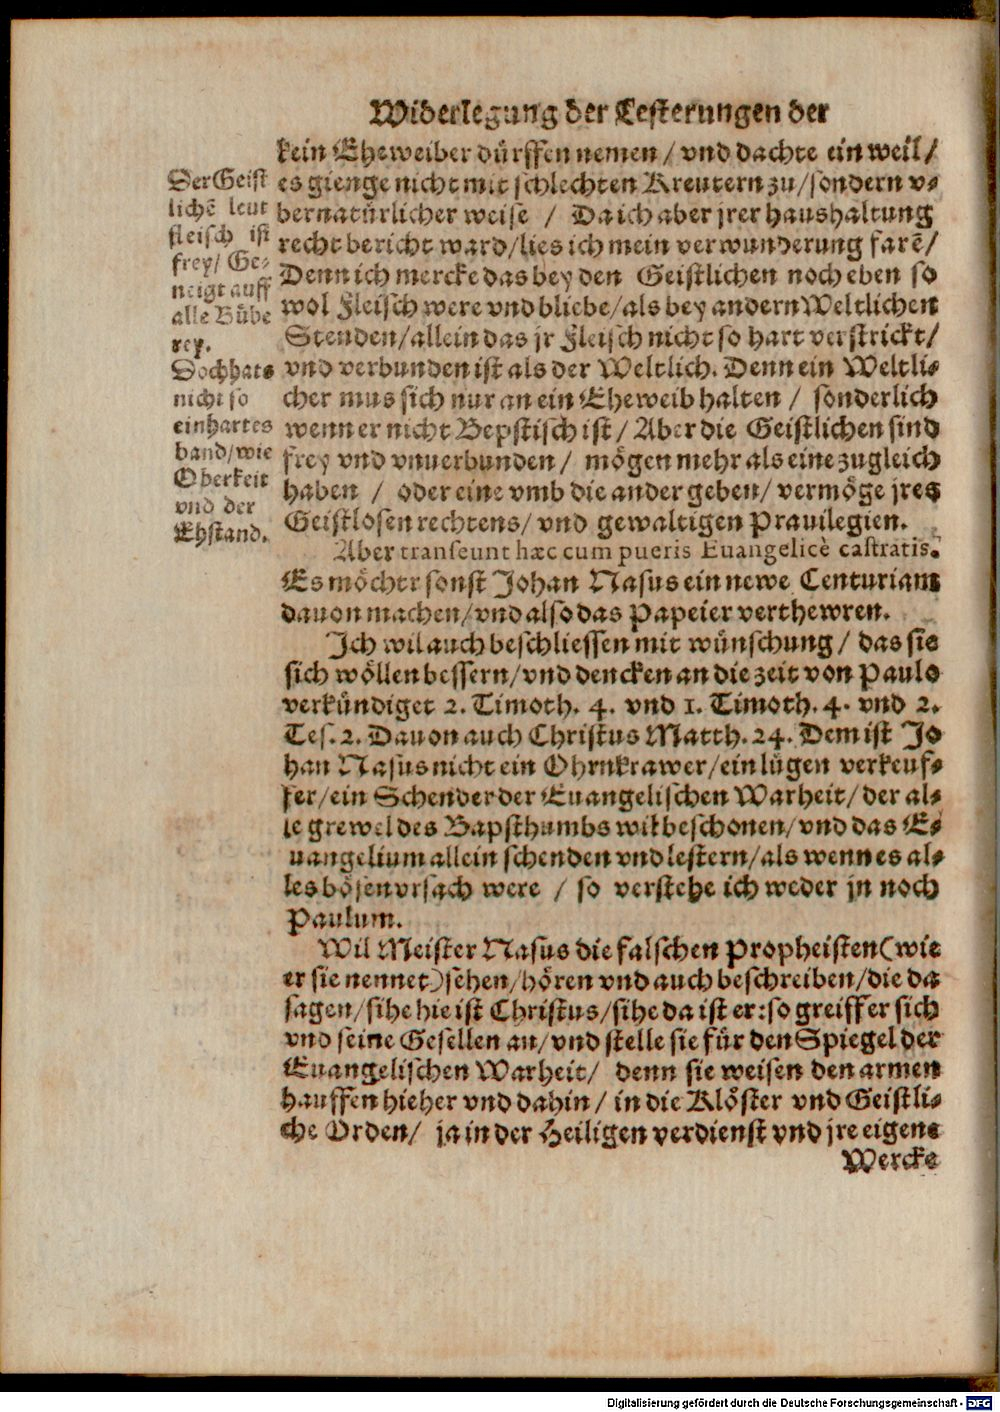 Widerlegung der Lesterungen der
kein Eheweiber dürffen nemen / vnd dachte ein weil /
es gienge nicht mit schlechten Kreutern zu / sondern v-
bernatürlicher weise / Da ich aber jrer haushaltung
recht bericht ward / lies ich mein verwunderung farẽ /
Denn ich mercke das bey den Geistlichen noch eben so
wol Fleisch were vnd bliebe / als bey andern Weltlichen
Stenden / allein das jr Fleisch nicht so hart verstrickt /
vnd verbunden ist als der Weltlich. Denn ein Weltli-
cher mus sich nur an ein Eheweib halten / sonderlich
wenn er nicht Bepstisch ist / Aber die Geistlichen sind
frey vnd vnuerbunden / mögen mehr als eine zugleich
haben / oder eine vmb die ander geben / vermöge jres
Geistlosen rechtens / vnd gewaltigen Prauilegien.
Der Geist
lichẽ leut
fleisch ist
frey / Ge-
neigt auff
alle Bübe
rey.
Doch hats
nicht so
ein hartes
band / wie
Oberkeit
vnd der
Ehstand.
Aber transeunt hæc cum pueris Euangelicè castratis.
Es möchte sonst Johan Nasus ein newe Centuriam
dauon machen / vnd also das Papeier verthewren.
Ich wil auch beschliessen mit wünschung / das sie
sich wöllen bessern / vnd dencken an die zeit von Paulo
verkündiget 2. Timoth. 4. vnd 1. Timoth. 4. vnd 2.
Tes. 2. Dauon auch Christus Matth. 24. Dem ist Jo
han Nasus nicht ein Ohrnkrawer / ein lügen verkeuf-
fer / ein Schender der Euangelischen Warheit / der al-
le grewel des Bapsthumbs wil beschonen / vnd das E-
uangelium allein schenden vnd lestern / als wenn es al-
les bösen vrsach were / so verstehe ich weder jn noch
Paulum.
Wil Meister Nasus die falschen Propheisten (wie
er sie nennet) sehen / hören vnd auch beschreiben / die da
sagen / sihe hie ist Christus / sihe da ist er: so greiff er sich
vnd seine Gesellen an / vnd stelle sie für den Spiegel der
Euangelischen Warheit / denn sie weisen den armen
hauffen hieher vnd dahin / in die Klöster vnd Geistli-
che Orden / ja in der Heiligen verdienst vnd jre eigene
Wercke
Digitalisierung gefördert durch die Deutsche Forschungsgemeinschaft - DFG